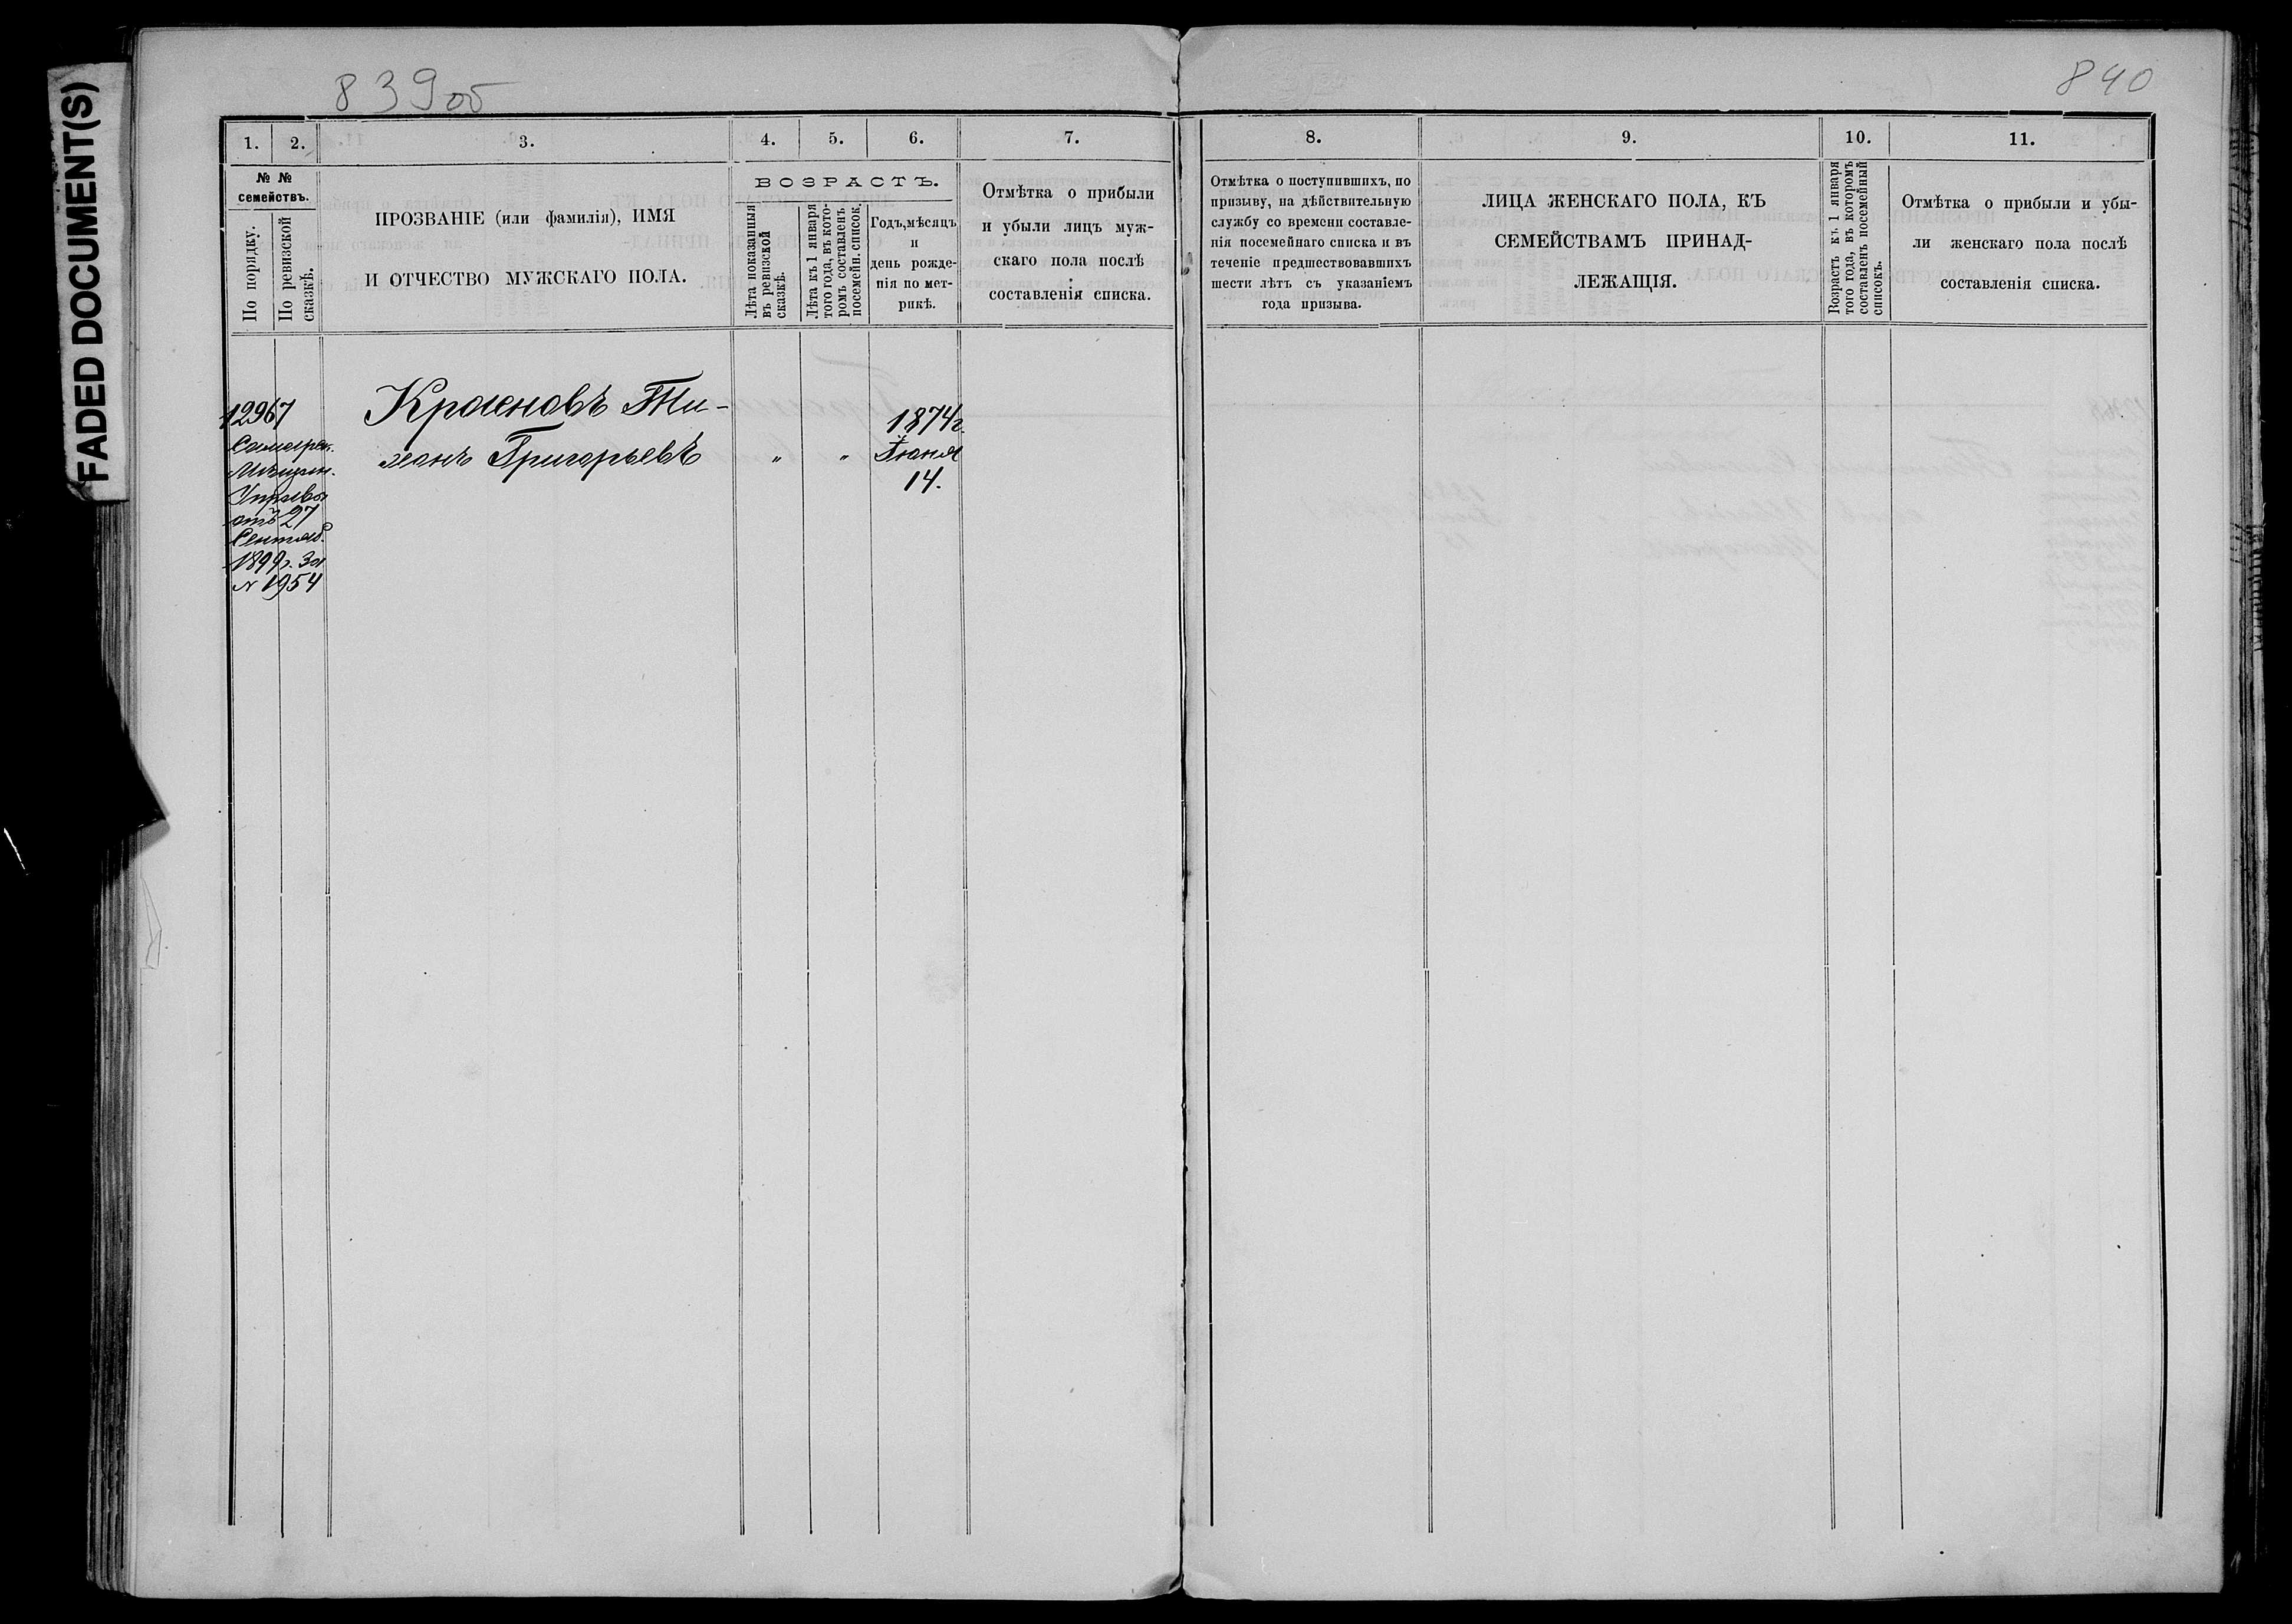 FADED DOCUMENT(S)
839об
840
1. 2. 3. 4. 5. 6. 7. 8. 9. 10. 11.
№ №
семействъ.
По порядку.
По ревизской
сказкѣ.
ПРОЗВАНІЕ (или фамилія), ИМЯ
И ОТЧЕСТВО МУЖСКАГО ПОЛА.
ВОЗРАСТЪ.
Лѣта показанныя
въ ревизской
сказкѣ.
Лѣта къ 1 января
того года, въ кото-
ромъ составленъ
посемейн. список.
Годъ, мѣсяцъ
и
день рожде-
нія по мет-
рикѣ.
Отмѣтка о прибыли
и убыли лицъ муж-
скаго пола послѣ
составленія списка.
Отмѣтка о поступившихъ, по
призыву, на дѣйствительную
службу со времени составле-
нія посемейнаго списка и въ
теченіе предшествовавшихъ
шести лѣтъ съ указаніемъ
года призыва.
ЛИЦА ЖЕНСКАГО ПОЛА, КЪ
СЕМЕЙСТВАМЪ ПРИНАД-
ЛЕЖАЩІЯ.
Возрастъ къ 1 января
того года, въ которомъ
составленъ посемейный
списокъ.
Отмѣтка о прибыли и убы-
ли женскаго пола послѣ
составленія списка.
12967
Мѣщан.
Управы
отъ 27
Сентяб.
1899г. за
№ 1954
Красновъ Ти-
Григорьевъ " "
1874г.
Іюня
14.